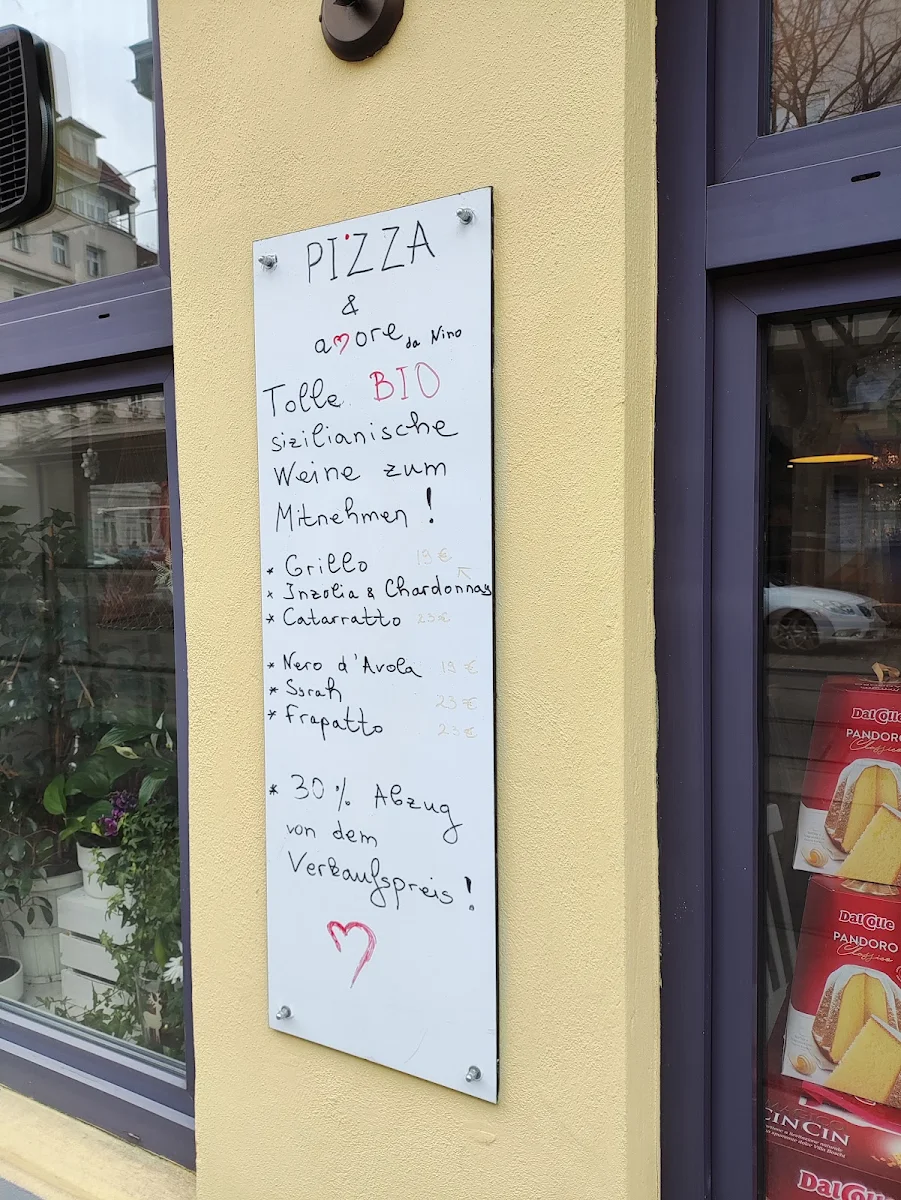 PIZZA
&
amore da Nino
Tolle BIO
sizilianische
Weine zum
Mitnehmen!
* Grillo 19 €
* Inzolia & Chardonnay
* Catarratto 23 €
* Nero d'Avola 19 €
* Syrah 23 €
* Frapatto 23 €
* 30% Abzug
von dem
Verkaufspreis!
DalColle
PANDORO
Classico
DalColle
PANDORO
Classico
CINCIN
DalColle